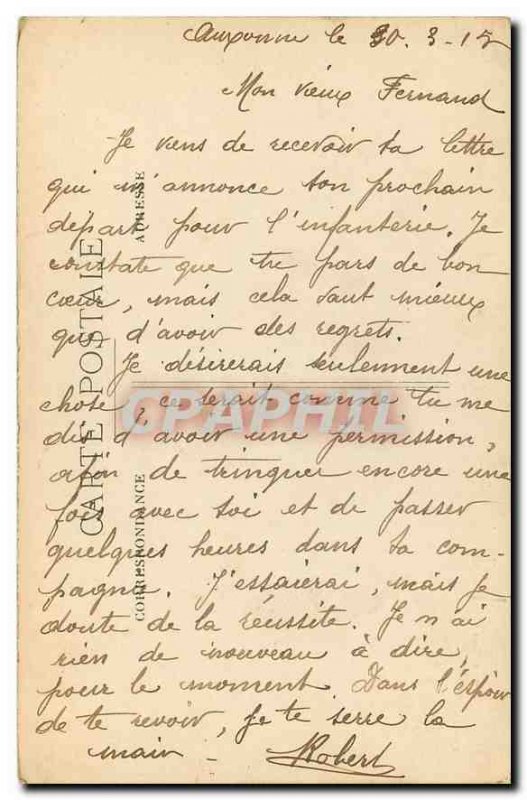 Auxonne le 30. 3 - 15
Mon vieux Fernand
Je viens de recevoir ta lettre
qui m'annonce ton prochain
départ pour l'infanterie. Je
constate que tu pars de bon
cœur, mais cela vaut mieux
que d'avoir des regrets.
Je désirerais seulement une
chose, ce serait comme tu me
dis d'avoir une permission,
afin de trinquer encore une
fois avec toi et de passer
quelques heures dans ta com-
pagnie. J'essaierai, mais je
doute de la réussite. Je n'ai
rien de nouveau à dire,
pour le moment. Dans l'espoir
de te revoir, je te serre la
main -
Robert
CARTE POSTALE
CORRESPONDANCE
ADRESSE
CPAPHIL